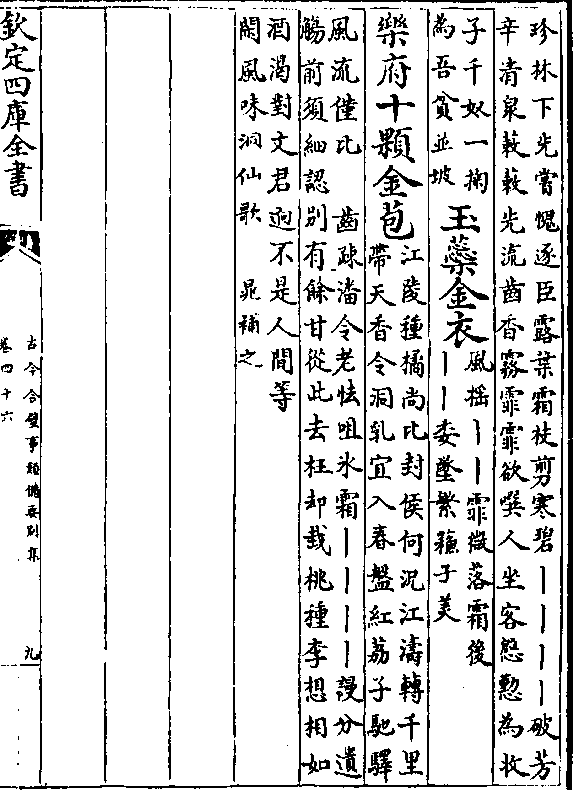 珍林下先嘗愧逐臣露葉霜枝剪寒碧｜｜｜｜破芳
辛清泉蔌蔌先流齒香霧霏霏欲噀人坐客慇懃為收
子千奴一掬
為吾貧並坡
玉蘂金衣
風揺｜｜霏微落霜後
｜｜委墜繁蘓子美
樂府十顆金苞
江陵種橘尚比封侯何況江濤轉千里
帶天香令洞乳宜入春盤紅荔子馳驛
風流僅比　齒疎潘令老怯咀氷霜｜｜｜｜謾分遺
觴前須細認別有餘甘從此去枉却栽桃種李想相如
酒渴對文君迥不是人間等
閑風味洞仙歌　晁補之
欽定四庫全書
古今合璧事類備要别集
卷四十六
九